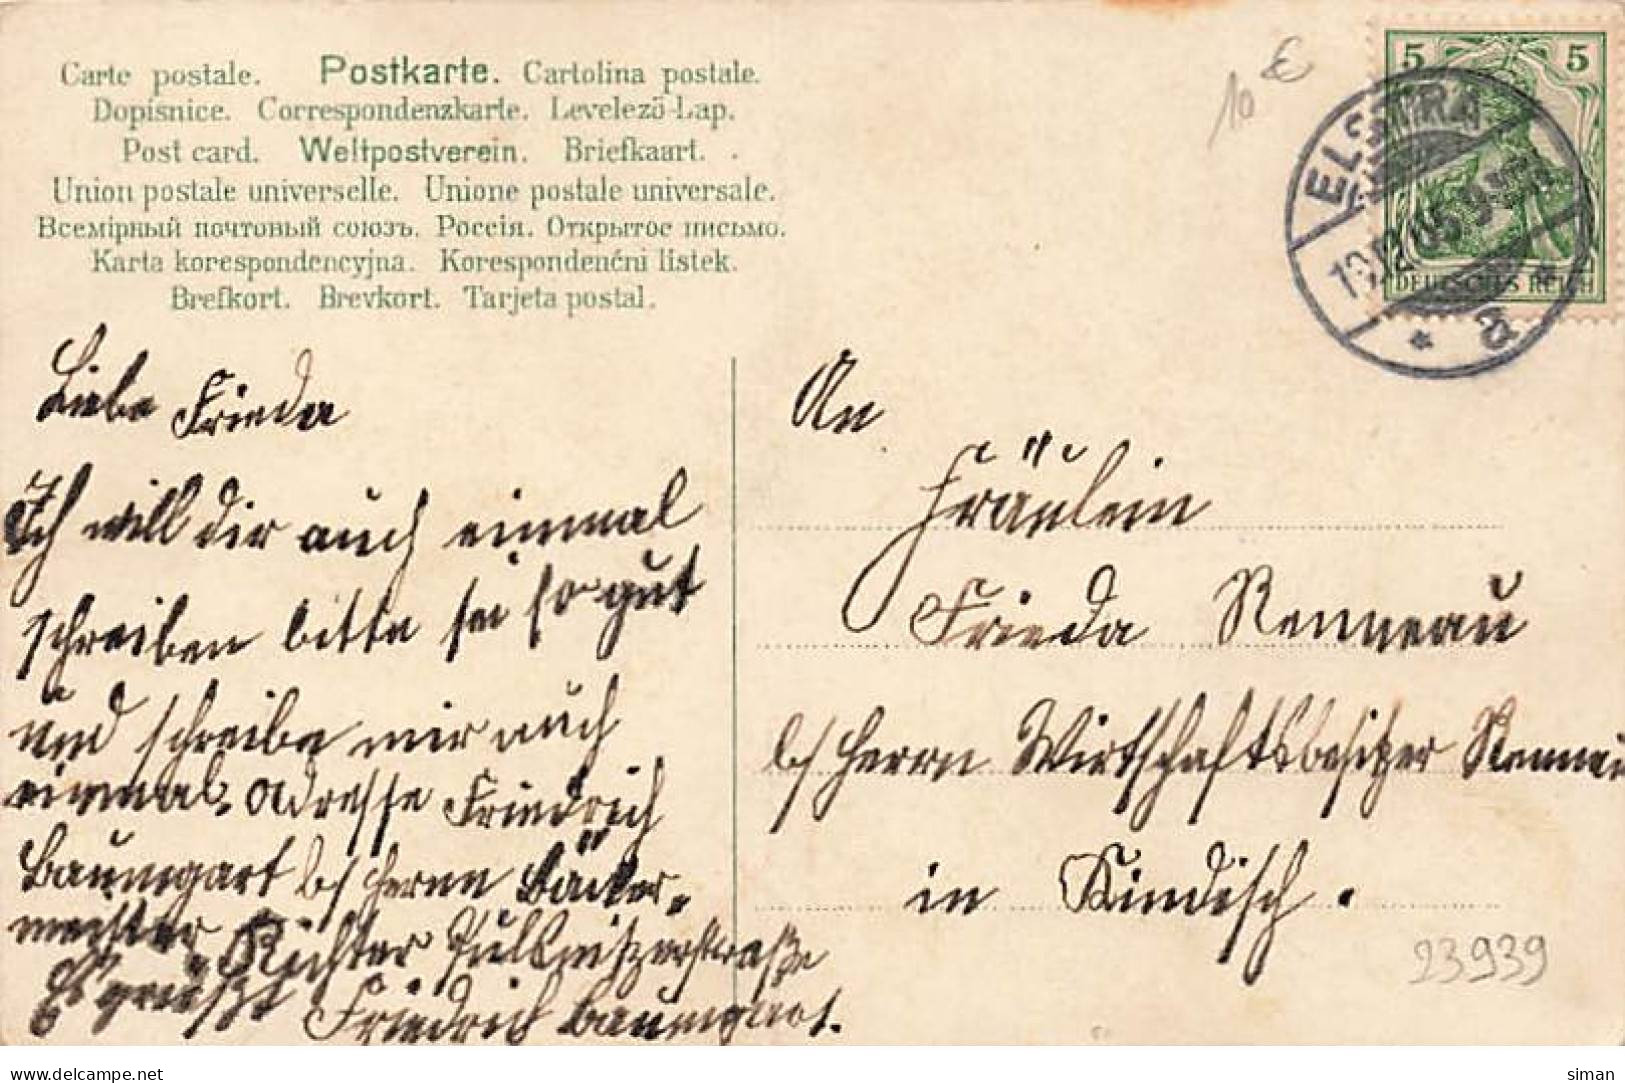 Carte postale. Postkarte. Cartolina postale.
Dopisnice. Correspondenzkarte. Levelező-Lap.
Post card. Weltpostverein. Briefkaart.
Union postale universelle. Unione postale universale.
Всемірный почтовый союзъ. Россія. Открытое письмо.
Karta korespondencyjna. Korespondenční listek.
Brefkort. Brevkort. Tarjeta postal.
10 €
5 5
DEUTSCHES REICH
ELSTRA
12.05
* a *
Liebe Frieda
Ich will dir auch einmal
schreiben bitte sei so gut
und schreibe mir auch
einmal. Adresse Friedrich
Baumgart b/ Herrn Bäcker-
meister Richter Pulsnitzerstraße
Es grüßt Friedrich Baumgart.
An
Fräulein
Frieda Renneau
b/ Herrn Wirtschaftsbesitzer Rennau
in Kindisch.
23939
delcampe.net
siman